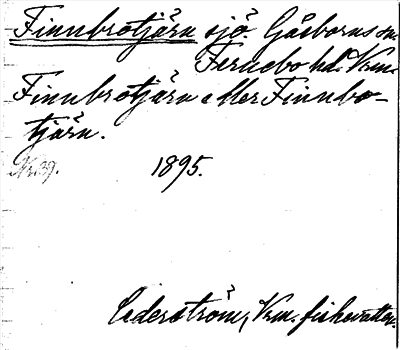 Finnbrotjärn sjö. Gåsborns sn.
Fernebo hd. Vrm.
Finnbrotjärn eller Finnbo-
tjärn.
Nr 39. 1895.
Cederström, Vrm. fiskevatten.